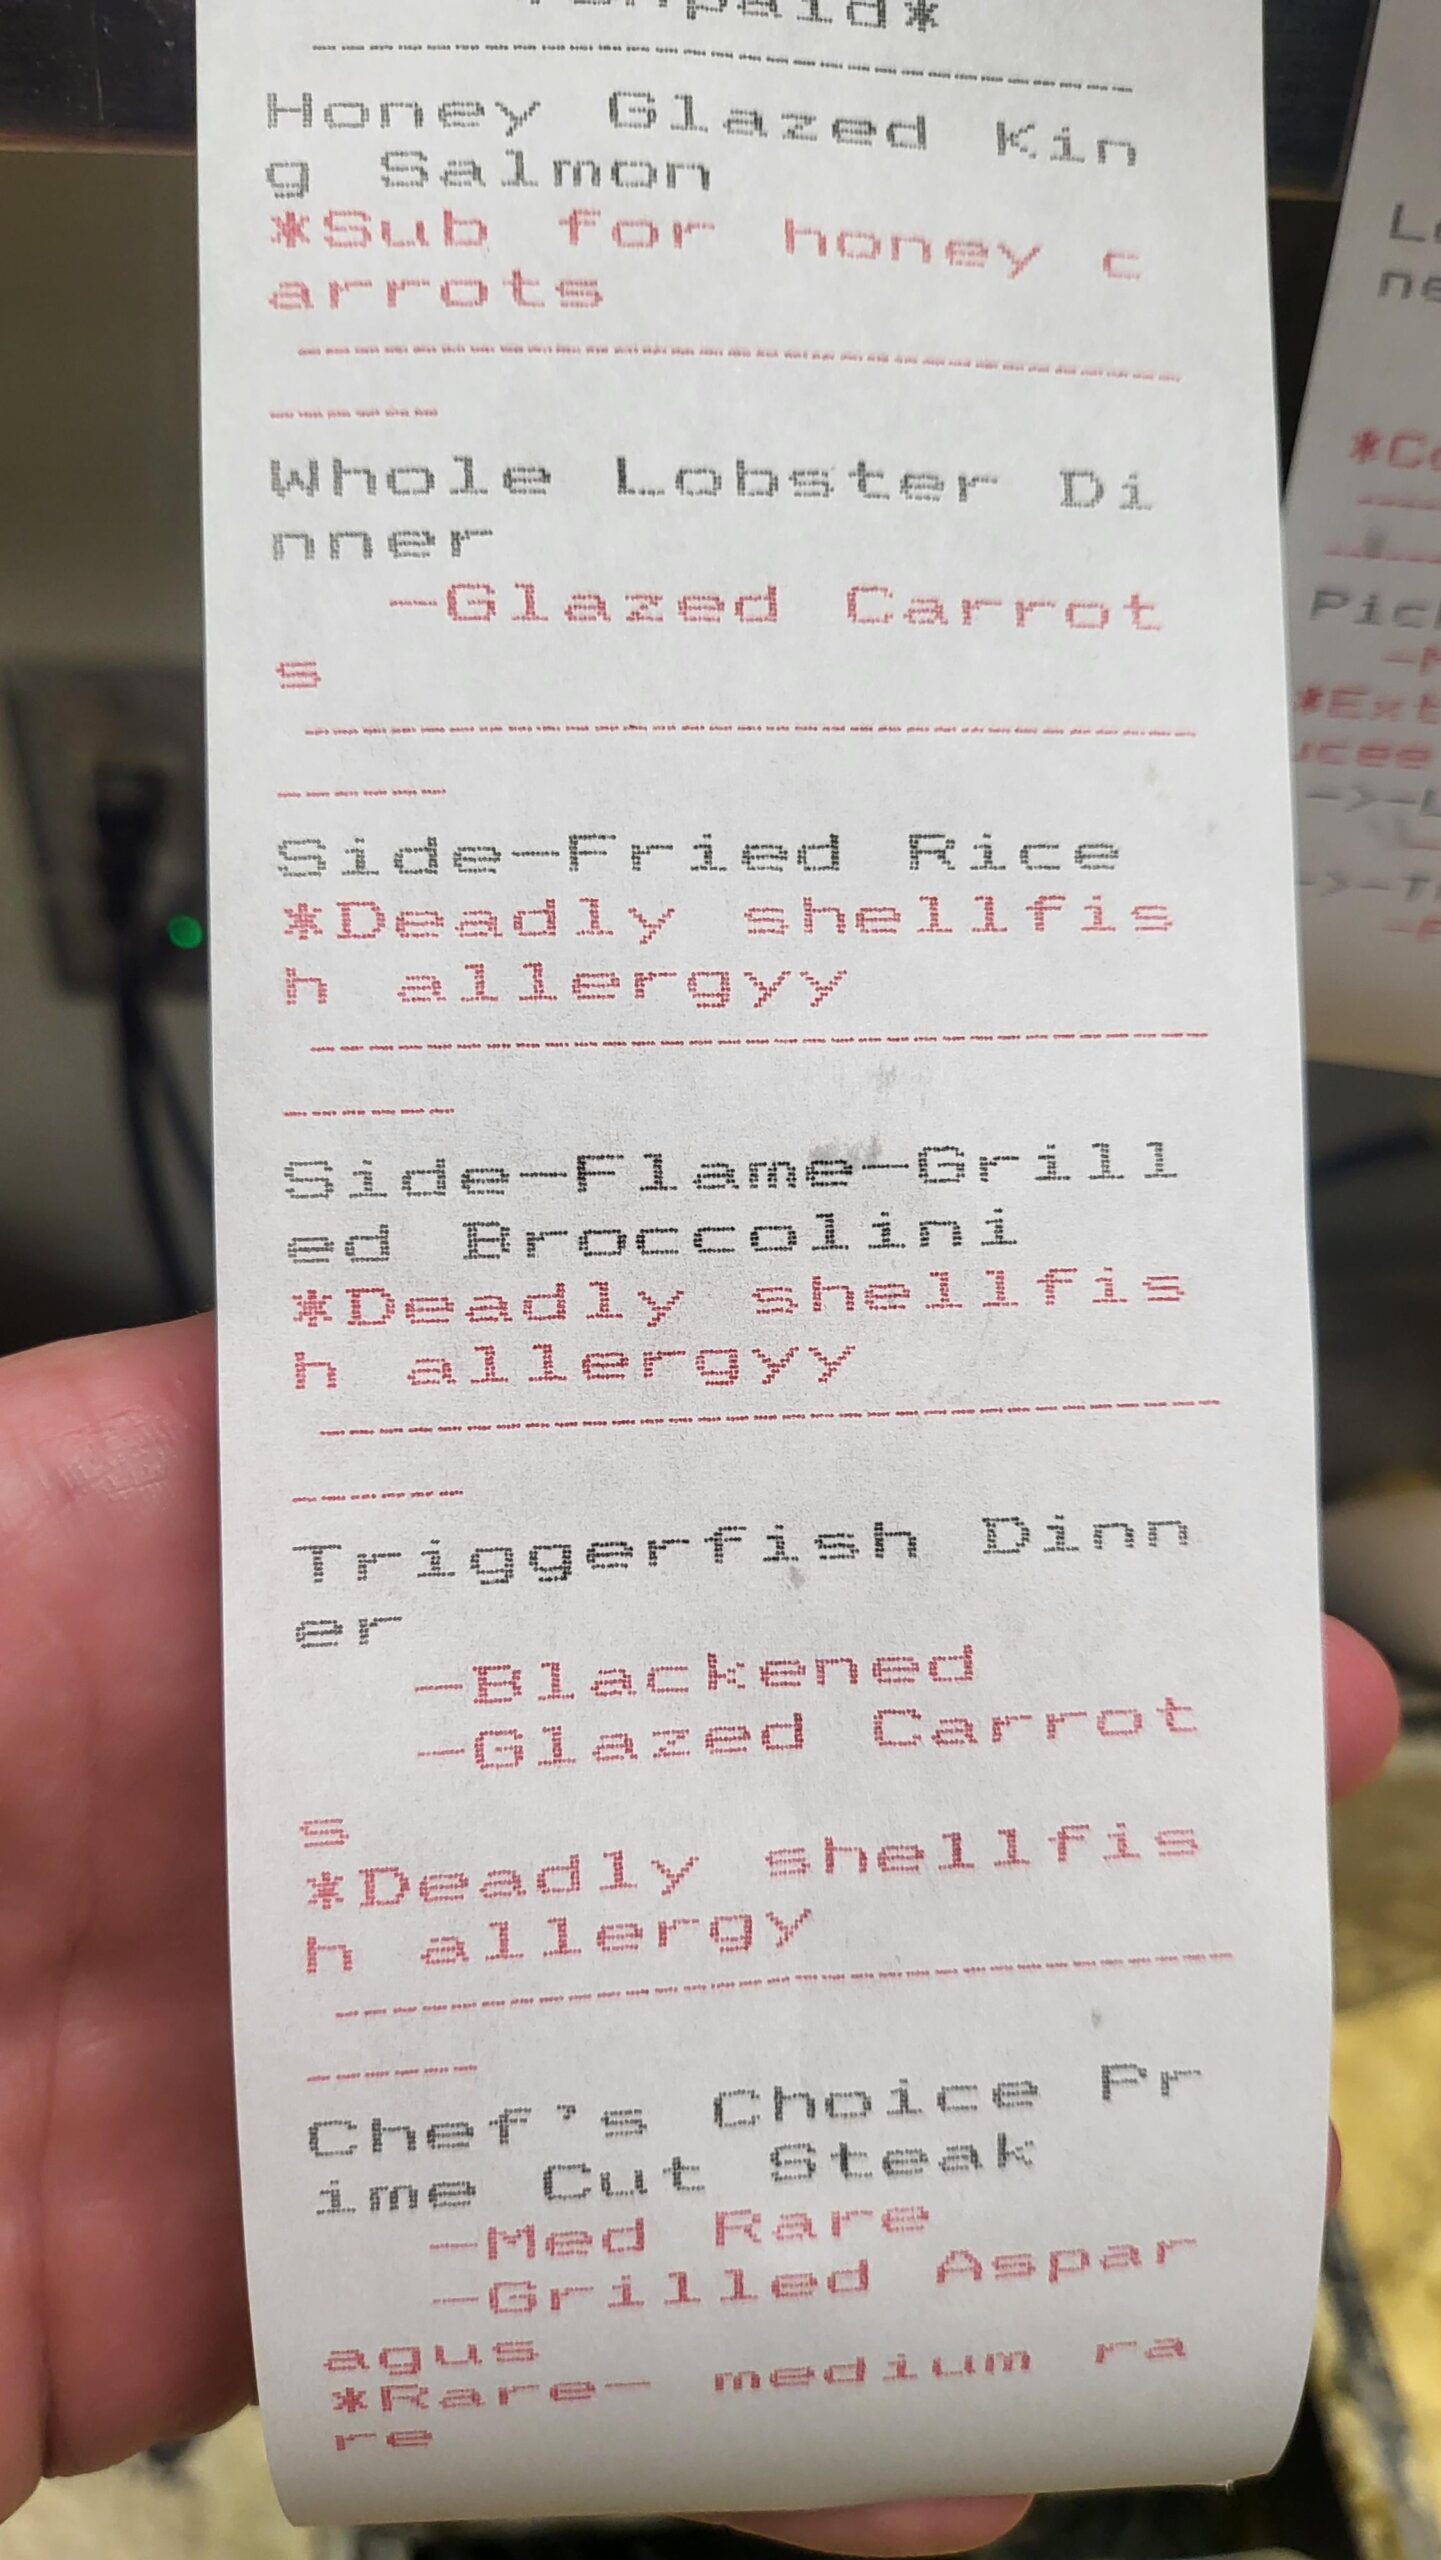 Honey Glazed Kin
g Salmon
*Sub for honey c
arrots
Whole Lobster Di
nner
-Glazed Carrot
s
Side-Fried Rice
*Deadly shellfis
h allergyy
Side-Flame-Grill
ed Broccolini
*Deadly shellfis
h allergyy
Triggerfish Dinn
er
-Blackened
-Glazed Carrot
s
*Deadly shellfis
h allergy
Chef's Choice Pr
ime Cut Steak
-Med Rare
-Grilled Aspar
agus
*Rare- medium ra
re